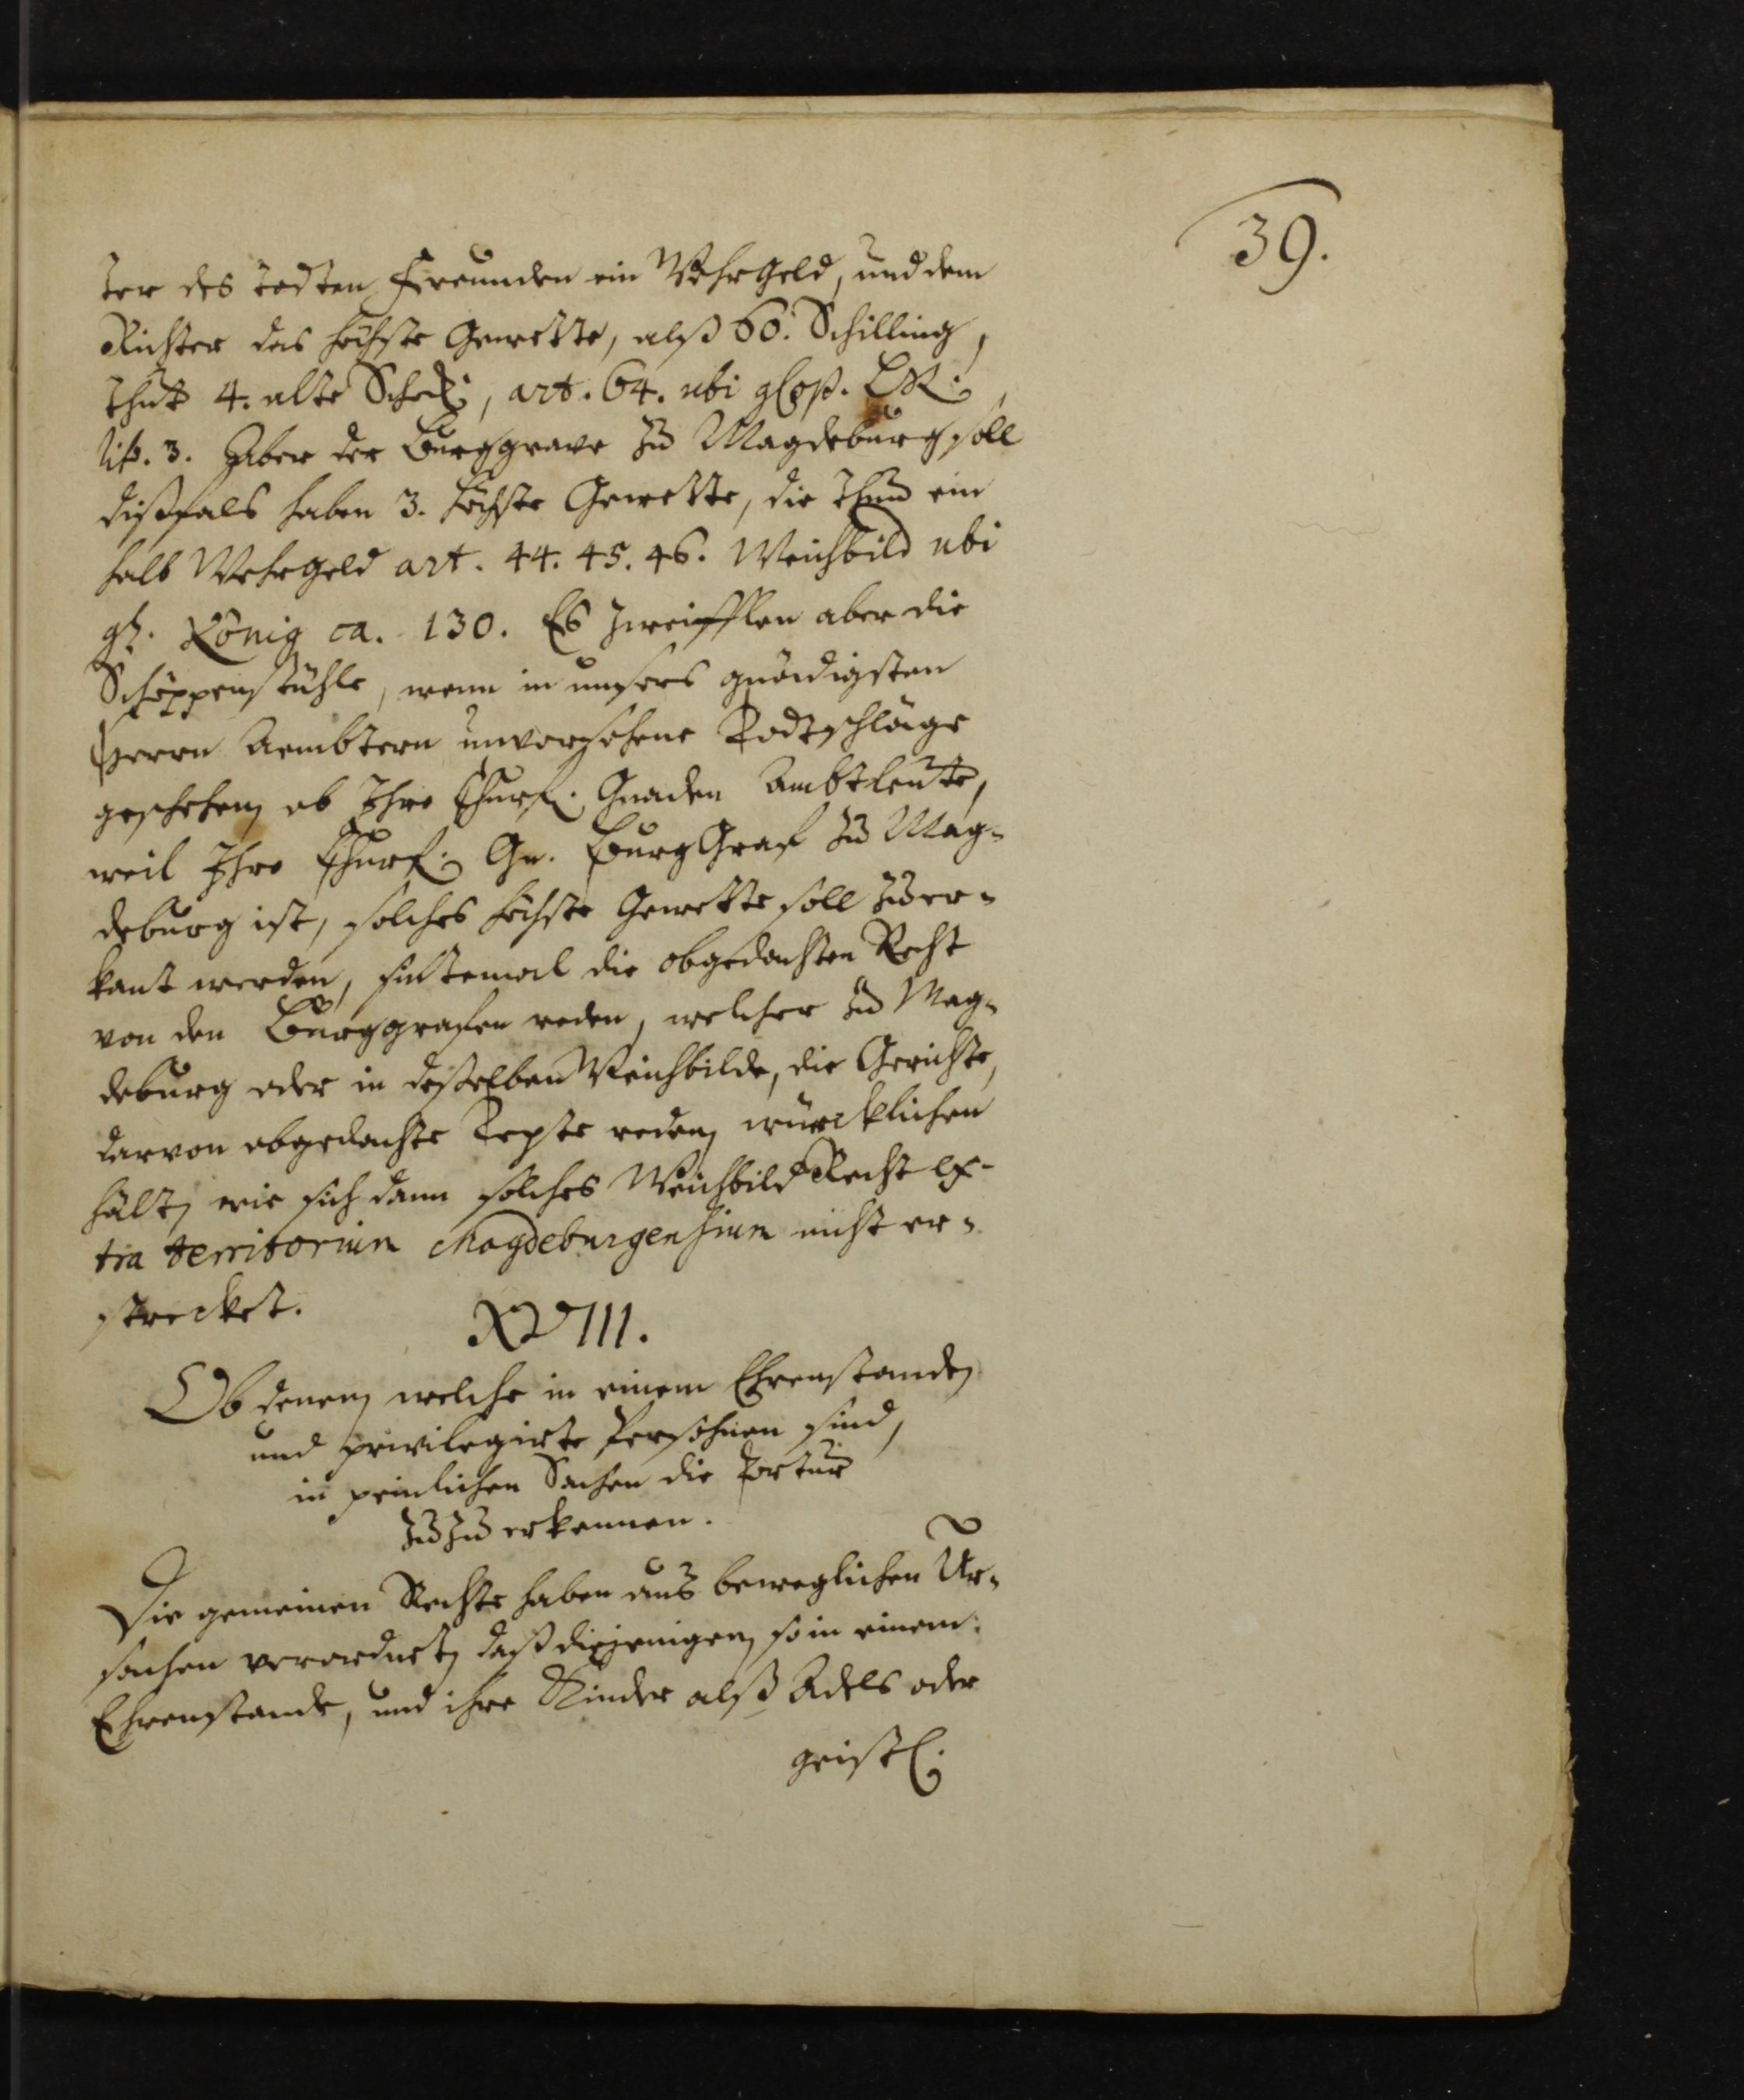 39.
ter des todten Freunden ein Wehrgeld, und dem
Richter das höchste Gewette, alß 60. Schilling,
thut 4. alte Schock, art. 64. ubi gloß. LR.
lib. 3. Aber der Burggrave zu Magdeburg soll
dißfals haben 3. höchste Gewette, die thun ein
halb Wehrgeld art. 44. 45. 46. Weichbild ubi
gl. König ca. 130. Es zweifflen aber die
Schöppenstühle, wenn in unsers gnädigsten
Herrn Aembtern unvorsehene Todtschläge
geschehen, ob Ihro Churf. Gnaden Ambtleute,
weil Ihro Churf. Gn. BurgGraf zu Mag-
deburg ist, solches höchste Gewette soll zuer-
kant werden, sintemal die obgedachten Recht
von den Burggrafen reden, welcher zu Mag-
deburg oder in deßelben Weichbilde, die Gerichte,
darvon obgedachte Texte reden, würcklichen
hält, wie sich dann solches Weichbild Recht ex-
tra territorium Magdeburgensium nicht er-
strecket.
XVIII.
Ob denen, welche in einem Ehrenstande,
und privilegirte Persohnen sind,
in peinlichen Sachen die Tortur
zuzuerkennen.
Die gemeinen Rechte haben aus beweglichen Ur-
sachen verordnet, daß diejenigen, so in einem
Ehrenstande, und ihre Kinder alß Adels oder
geistl.